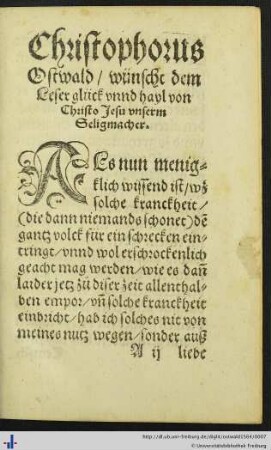 Christophorus
Ostwald / wünscht dem
Leser glück vnnd hayl von
Christo Jesu vnserm
Seligmacher.
ALs nun menig-
klich wissend ist / wz
solche kranckheit /
(die dann niemands schonet) dē
gantz volck für ein schrecken ein-
tringt / vnnd wol erschrockenlich
geacht mag werden / wie es dañ
laider jetz zů diser zeit allenthal-
ben empor / vñ solche kranckheit
einbricht / hab ich solches nit von
meines nutz wegen / sonder auß
A ij liebe
http://dl.ub.uni-freiburg.de/diglit/ostwald1564/0007
© Universitätsbibliothek Freiburg